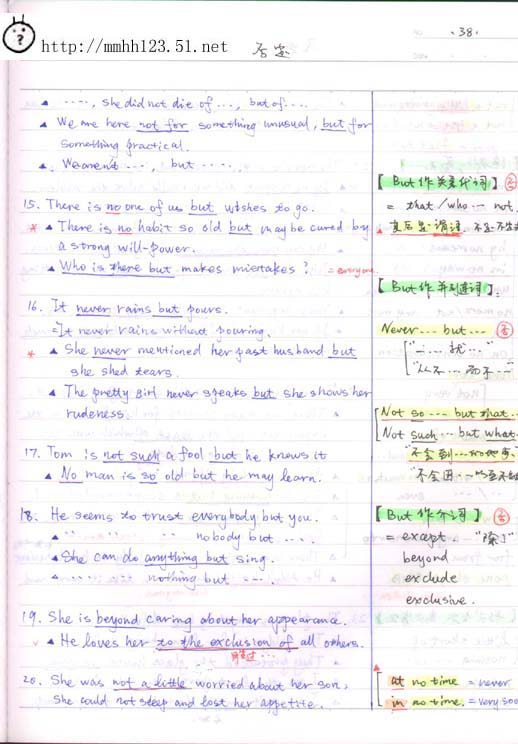 ·38·
http://mmhh123.51.net 否定
▲ ····, she did not die of ..., but of....
▲ We are here not for something unusual, but for
something practical.
▲. We aren't ···, but ·····.
【But 作关系代词】 否
= that/who ... not.
15. There is no one of us but wishes to go.
* ▲ There is no habit so old but may be cured by
a strong will-power.
▲ Who is there but makes mistakes? = everyone
【But 作并列连词】:
16. It never rains but pours.
=It never rains without pouring.
Never... but... 否
* ▲ She never mentioned her past husband but
she shed tears.
"一...就..."
"从不...而不..."
▲ The pretty girl never speaks but she shows her
rudeness.
Not so... but that...
Not such... but what
17. Tom is not such a fool but he knows it
▲ No man is so old but he may learn.
18. He seems to trust everybody but you.
▲ " " " nobody but ···.
▲ She can do anything but sing.
▲ ········ nothing but ···.
【But 作介词】 否
= except "除了"
beyond
exclude
exclusive.
19. She is beyond caring about her appearance.
√ ▲ He loves her to the exclusion of all others.
20. She was not a little worried about her son,
She could not sleep and lost her appetite.
at no time = never
in no time. = very soo